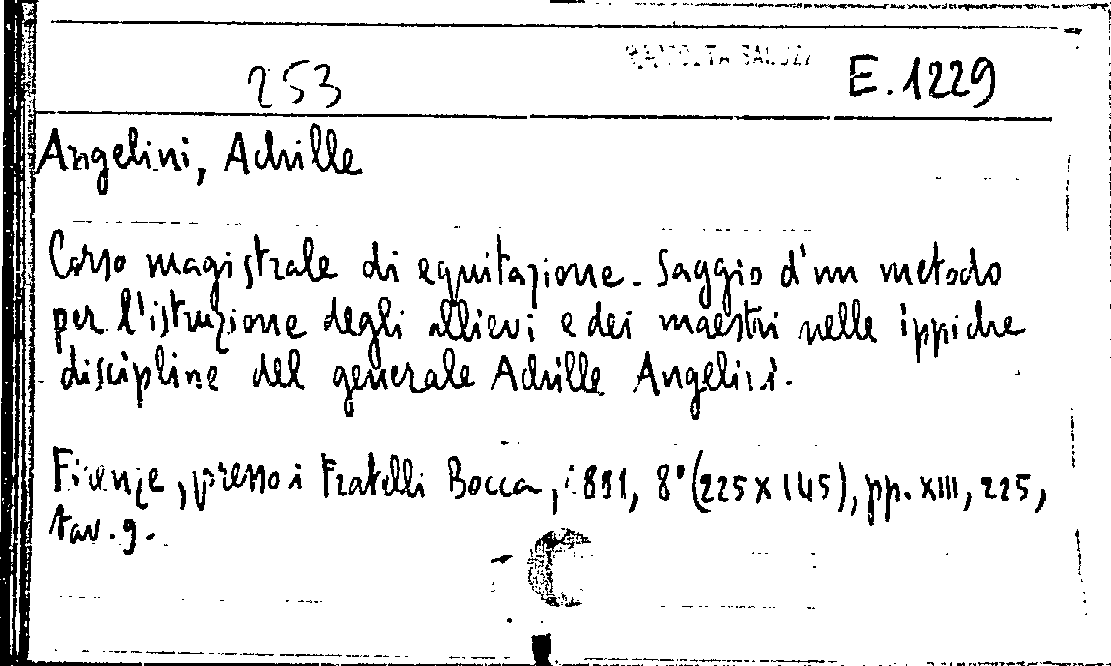 253
RACCOLTA SALUZZ
E. 1229
Angelini, Achille
Corso magistrale di equitazione. Saggio d'un metodo
per l'istruzione degli allievi e dei maestri nelle ippiche
discipline del generale Achille Angelini.
Firenze, presso i Fratelli Bocca, 1891, 8° (225 x 145), pp. XIII, 225,
tav. 9.